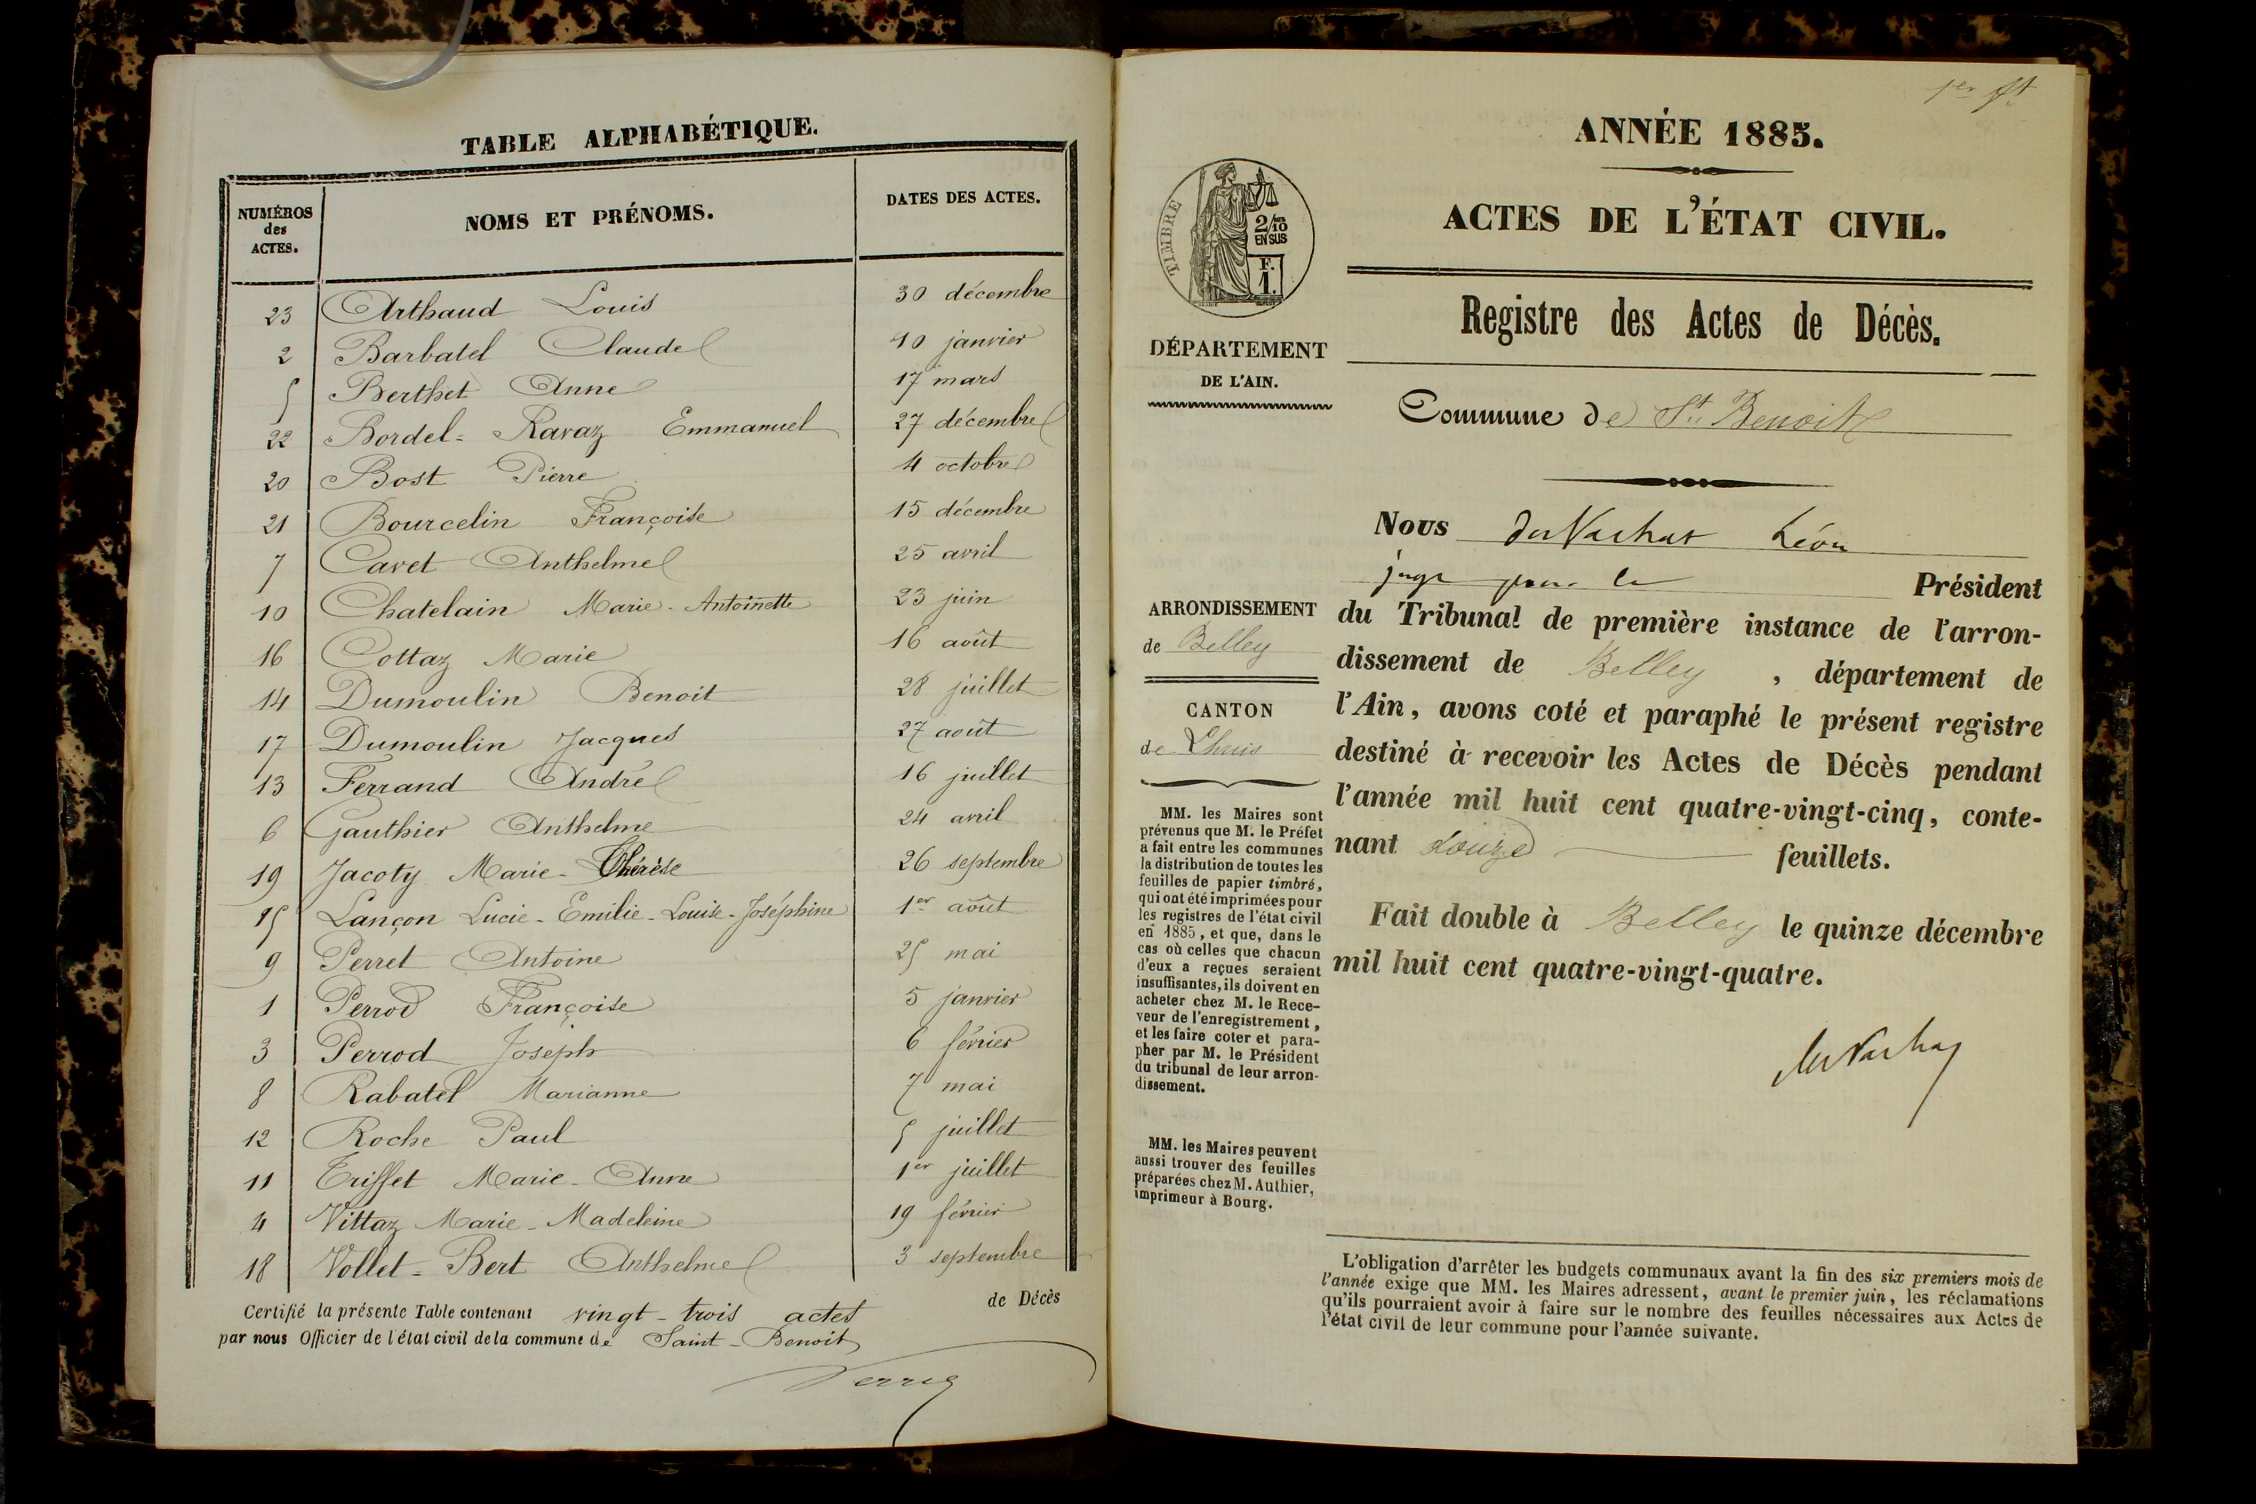 TABLE ALPHABÉTIQUE.
NUMÉROS
des
ACTES.
NOMS ET PRÉNOMS.
DATES DES ACTES.
23 Arthaud Louis 30 décembre
2 Barbatel Claude 10 janvier
5 Berthet Anne 17 mars
22 Bordel-Ravaz Emmanuel 27 décembre
20 Bost Pierre 4 octobre
21 Bourcelin Françoise 15 décembre
7 Cavet Anthelme 25 avril
10 Chatelain Marie-Antoinette 23 juin
16 Cottaz Marie 16 août
14 Dumoulin Benoit 28 juillet
17 Dumoulin Jacques 27 août
13 Ferrand André 16 juillet
6 Gauthier Anthelme 24 avril
19 Jacoty Marie-Thérèse 26 septembre
15 Lançon Lucie-Emilie-Louise-Joséphine 1er août
9 Perret Antoine 25 mai
1 Perrod Françoise 5 janvier
3 Perrod Joseph 6 février
8 Rabatel Marianne 7 mai
12 Roche Paul 5 juillet
11 Triffet Marie-Anne 1er juillet
4 Vittaz Marie-Madeleine 19 février
18 Vollet-Bert Anthelme 3 septembre
Certifié la présente Table contenant vingt-trois actes de Décès
par nous Officier de l'état civil de la commune de Saint-Benoit
1er ft
ANNÉE 1885.
ACTES DE L'ÉTAT CIVIL.
TIMBRE
2/10
EN SUS
F.
1.
Registre des Actes de Décès.
DÉPARTEMENT
DE L'AIN.
Commune de St Benoit
Nous Léon
juge pour le Président
du Tribunal de première instance de l'arron-
dissement de Belley, département de
l'Ain, avons coté et paraphé le présent registre
destiné à recevoir les Actes de Décès pendant
l'année mil huit cent quatre-vingt-cinq, conte-
nant douze feuillets.
Fait double à Belley le quinze décembre
mil huit cent quatre-vingt-quatre.
ARRONDISSEMENT
de Belley
CANTON
de Lhuis
MM. les Maires sont
prévenus que M. le Préfet
a fait entre les communes
la distribution de toutes les
feuilles de papier timbré,
qui ont été imprimées pour
les registres de l'état civil
en 1885, et que, dans le
cas où celles que chacun
d'eux a reçues seraient
insuffisantes, ils doivent en
acheter chez M. le Rece-
veur de l'enregistrement,
et les faire coter et para-
pher par M. le Président
du tribunal de leur arron-
dissement.
MM. les Maires peuvent
aussi trouver des feuilles
préparées chez M. Authier,
imprimeur à Bourg.
L'obligation d'arrêter les budgets communaux avant la fin des six premiers mois de
l'année exige que MM. les Maires adressent, avant le premier juin, les réclamations
qu'ils pourraient avoir à faire sur le nombre des feuilles nécessaires aux Actes de
l'état civil de leur commune pour l'année suivante.